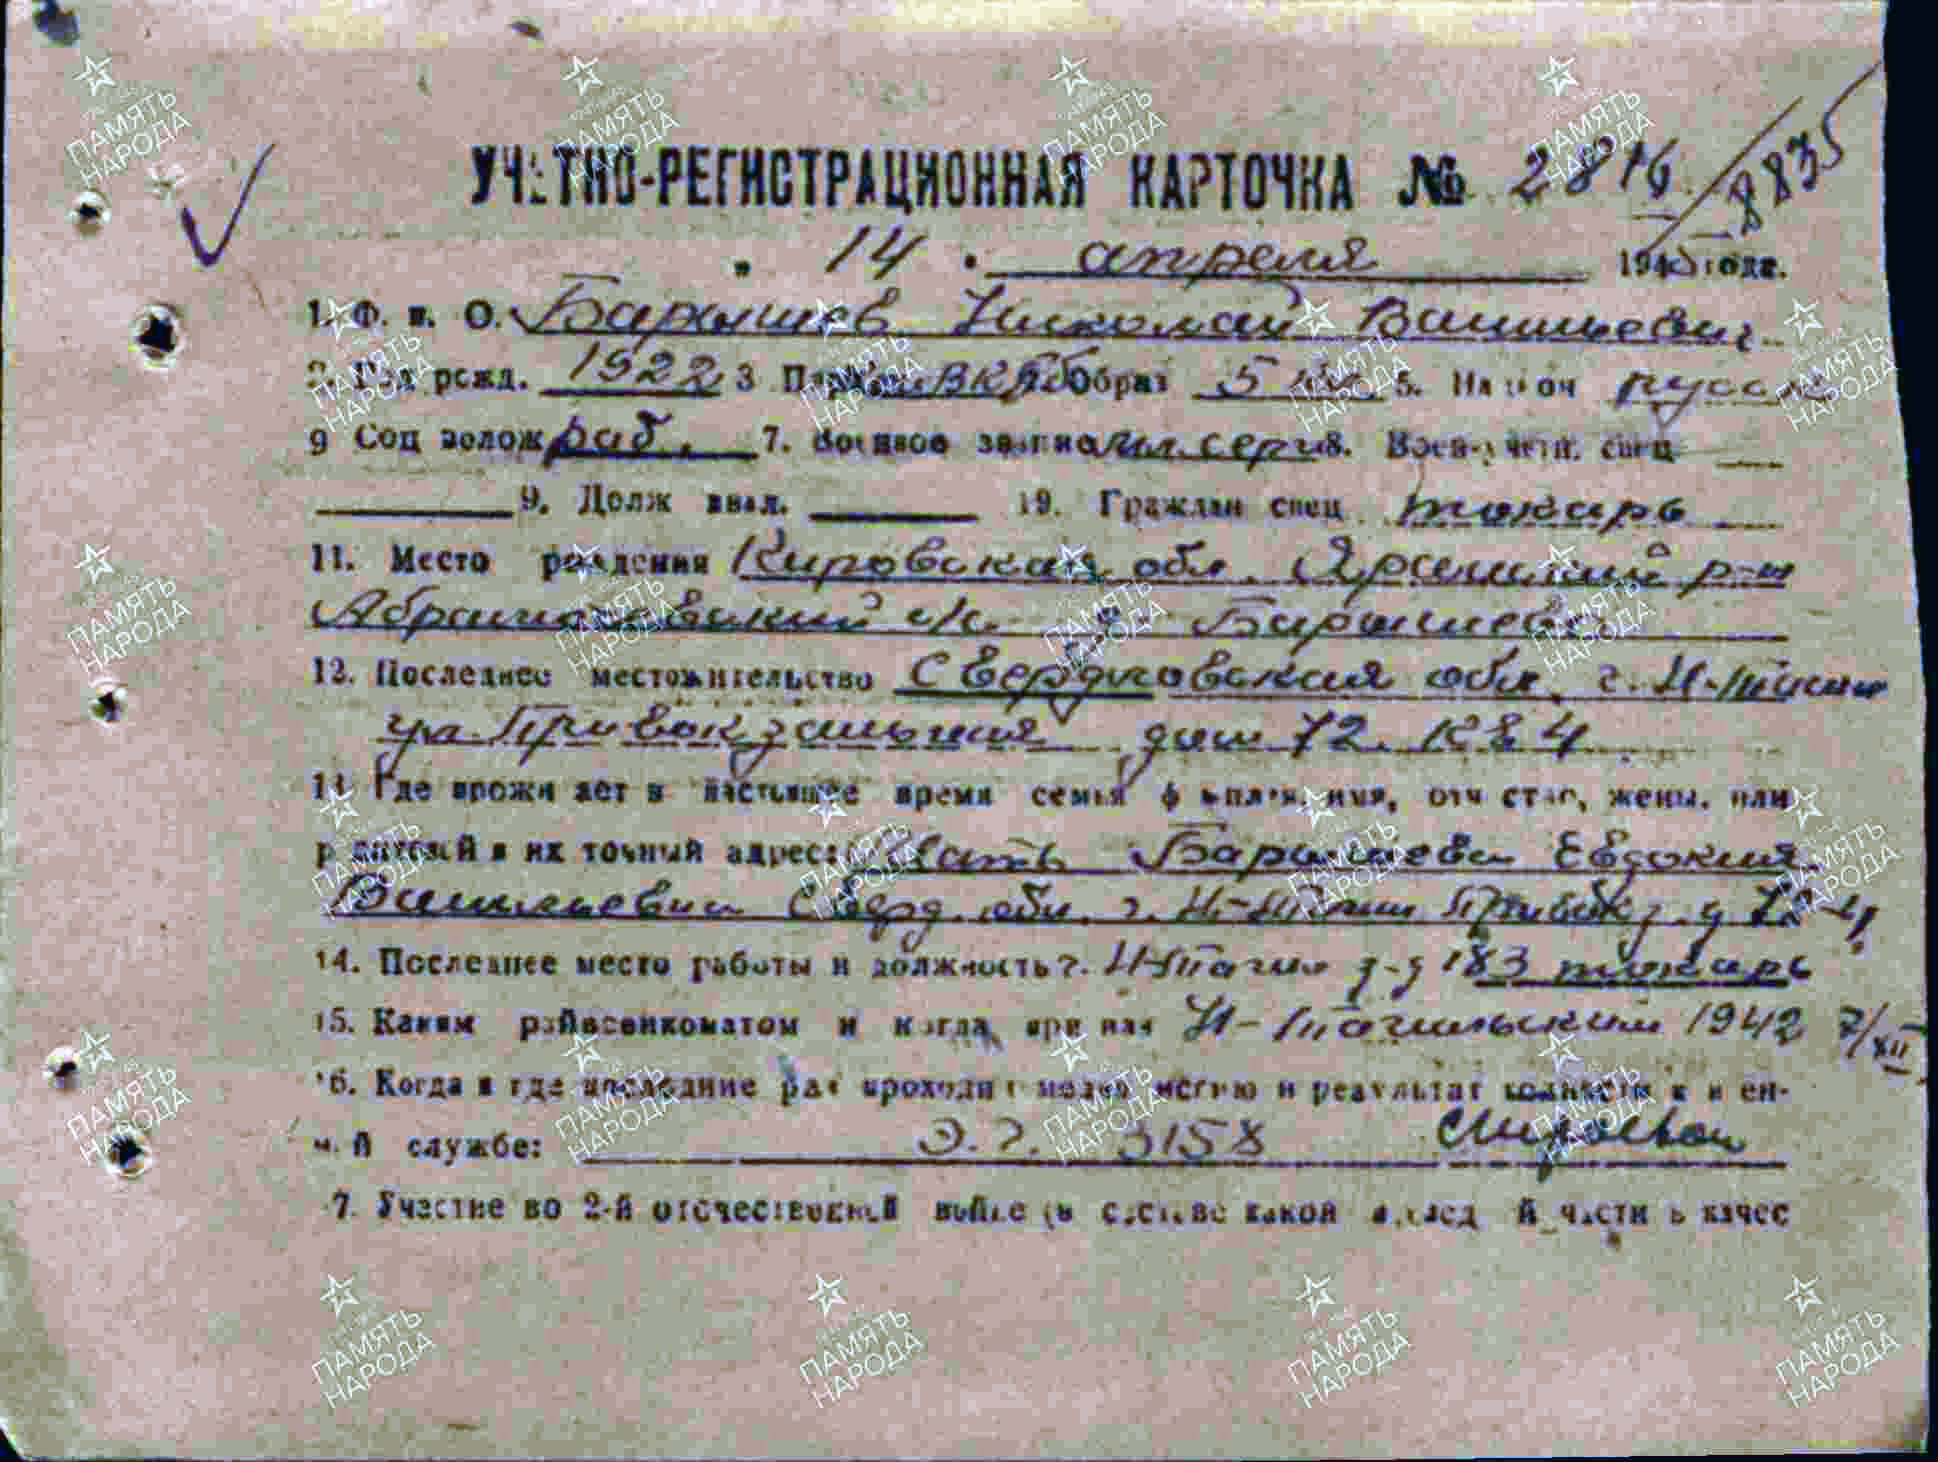 УЧЕТНО-РЕГИСТРАЦИОННАЯ КАРТОЧКА № 2816 / 8835
" 14 " апреля 1945 года.
1. Ф. и. О. Барышев Николай Васильевич
2. Год рожд. 1922 3 Парт ВКПб Образ 5 кл 5. Национ русск
9 Соц полож раб. 7. Военное звание мл. серж 8. Воен-учетн. спец —
9. Долж внал. — 19. Граждан спец токарь
11. Место рождения Кировская обл. Яранский р-н
Абрамовский с/с Барышево
12. Последнее местожительство Свердловская обл. г. Н-Тагил
ул. Привокзальная дом 72. кв 4
13 Где проживает в настоящее время семья фамилия, имя, отчество, жены, или
родителей и их точный адрес: Мать Барышева Евдокия
Васильевна Сверд. обл. г. Н-Тагил Привокз. д 72-4
14. Последнее место работы и должность г. Н-Тагил з-д 183 токарь
15. Каким райвоенкоматом и когда призван Н-Тагильским 1942 7/XII
16. Когда и где последние раз проходил медкомиссию и результат годности к воен-
ной службе: Э. г. 3158
17. Участие во 2-й отечественной войне (в составе какой последней части в качес
ПАМЯТЬ НАРОДА